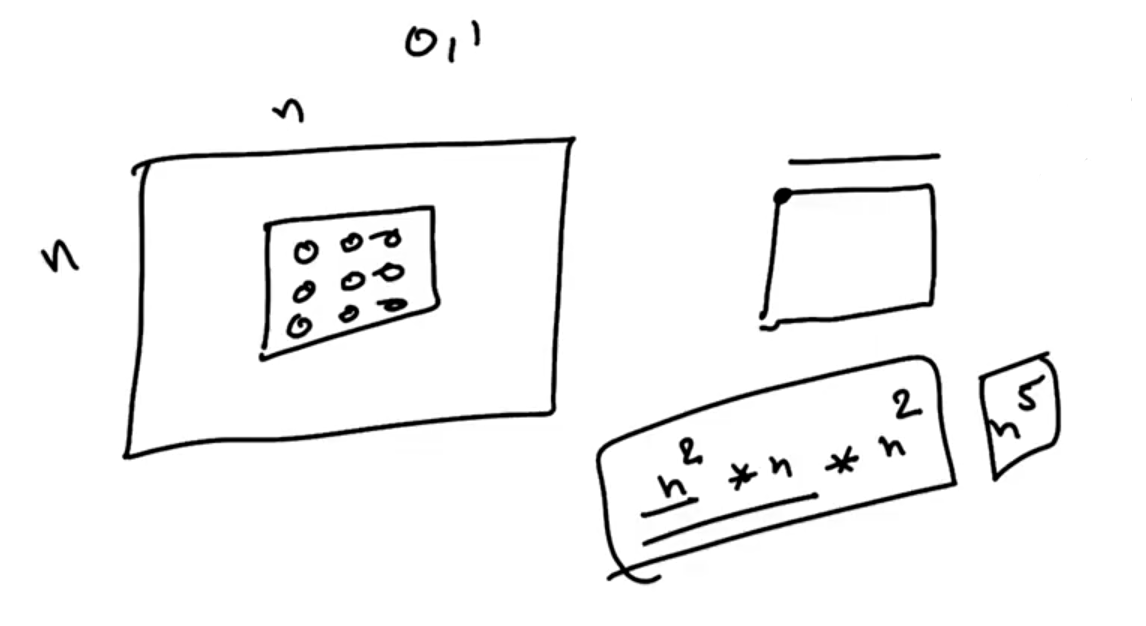 0,1
n
n
0 0 0
0 0 0
0 0 0
n² * n * n²
n⁵